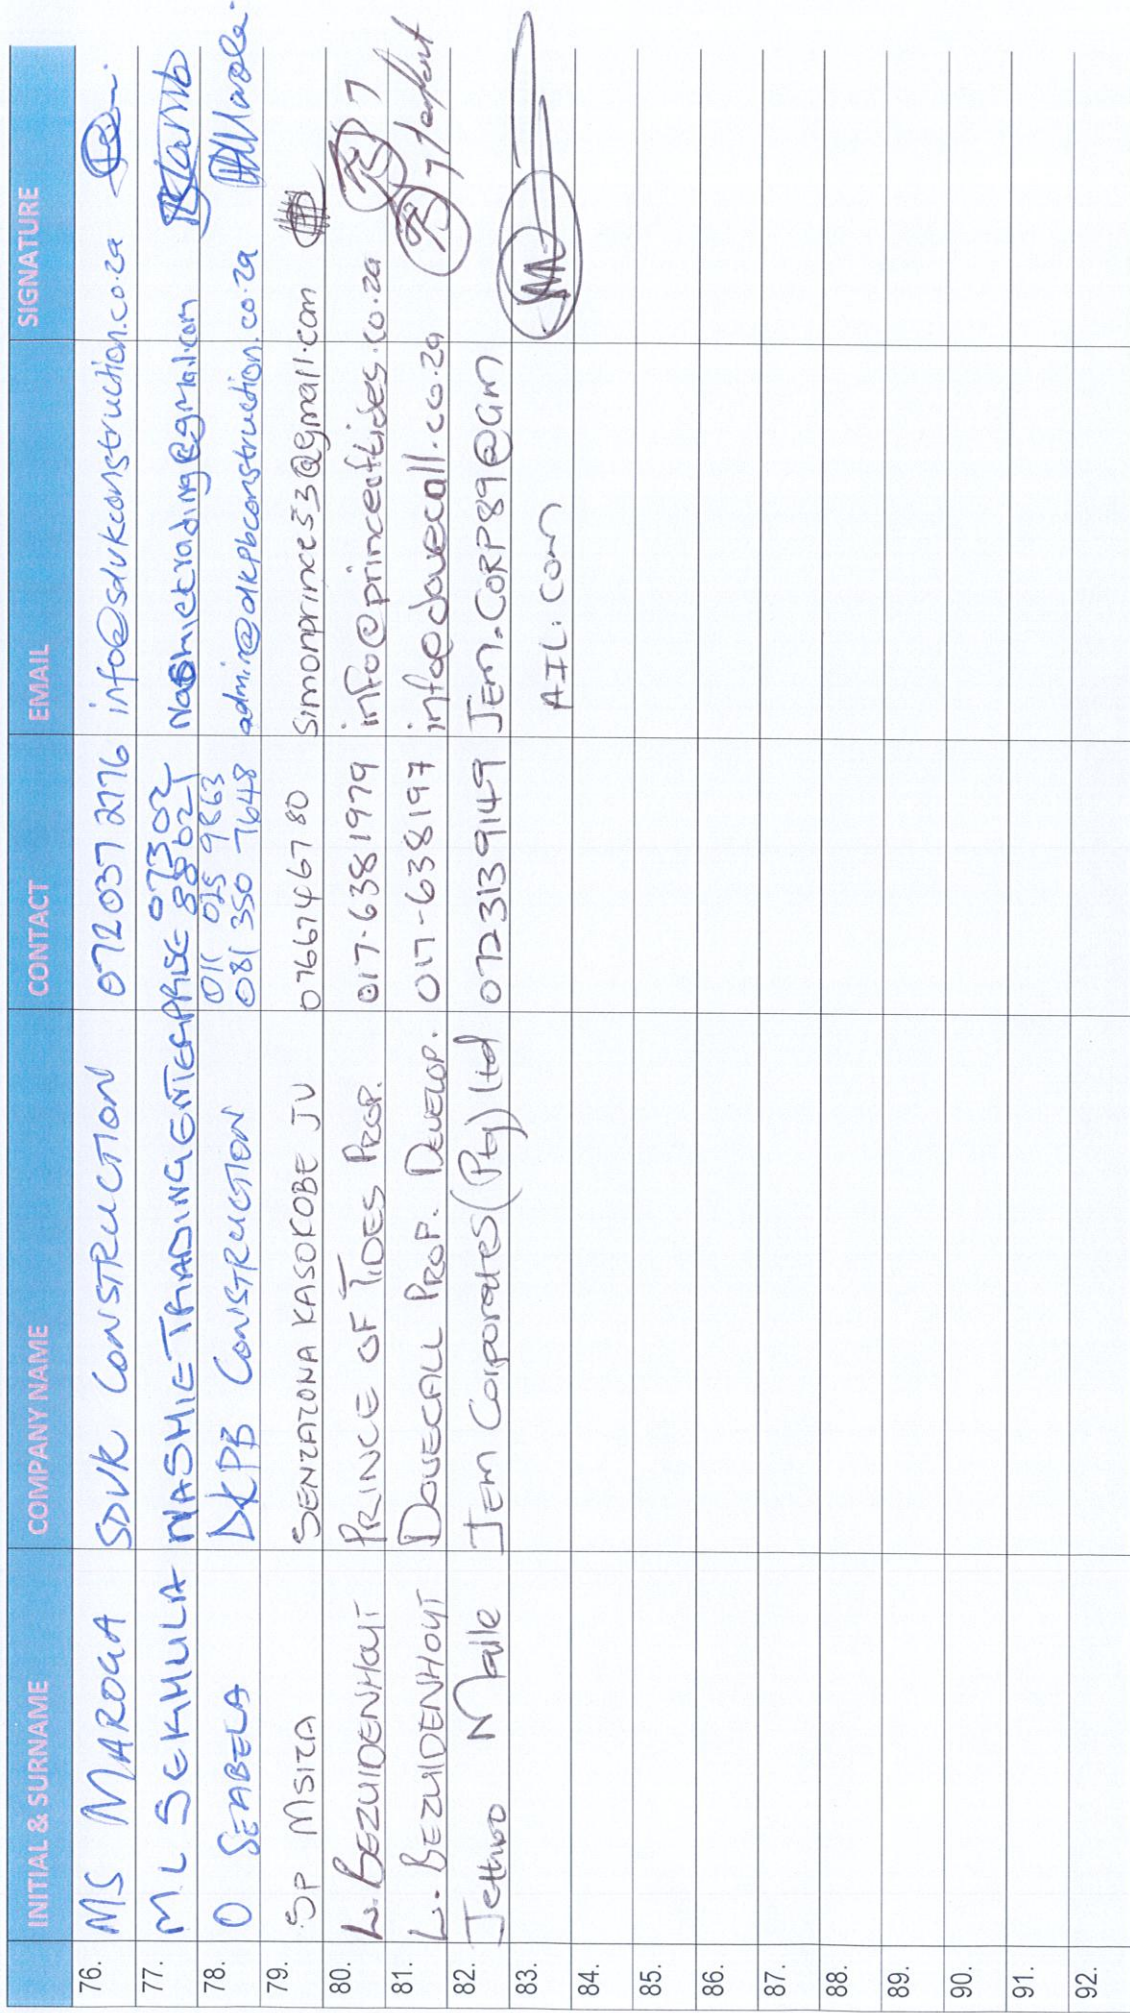 INITIAL & SURNAME COMPANY NAME CONTACT EMAIL SIGNATURE
76. MS MAROGA SDVK CONSTRUCTION 072 037 2776 info@sdvkconstruction.co.za
77. ML SEKHULA MASHIE TRADING ENTERPRISE 07302
88627
78. O SEABELA DKPB CONSTRUCTION 011 025 9863
081 350 7648 admin@dkpbconstruction.co.za
79. SP MSIZA SENZAZONA KASOKOBE JV 0766746780 simonprince53@gmail.com
80. L. BEZUIDENHOUT PRINCE OF TIDES PROP. 017-6381979 info@princeoftides.co.za
81. L. BEZUIDENHOUT DOVECALL PROP. DEVELOP. 017-638197 info@dovecall.co.za
82. Jethro Maile Jem Corporates (Pty) Ltd 0723139149 JEM.CORP89@GM
83. AIL.COM
84.
85.
86.
87.
88.
89.
90.
91.
92.